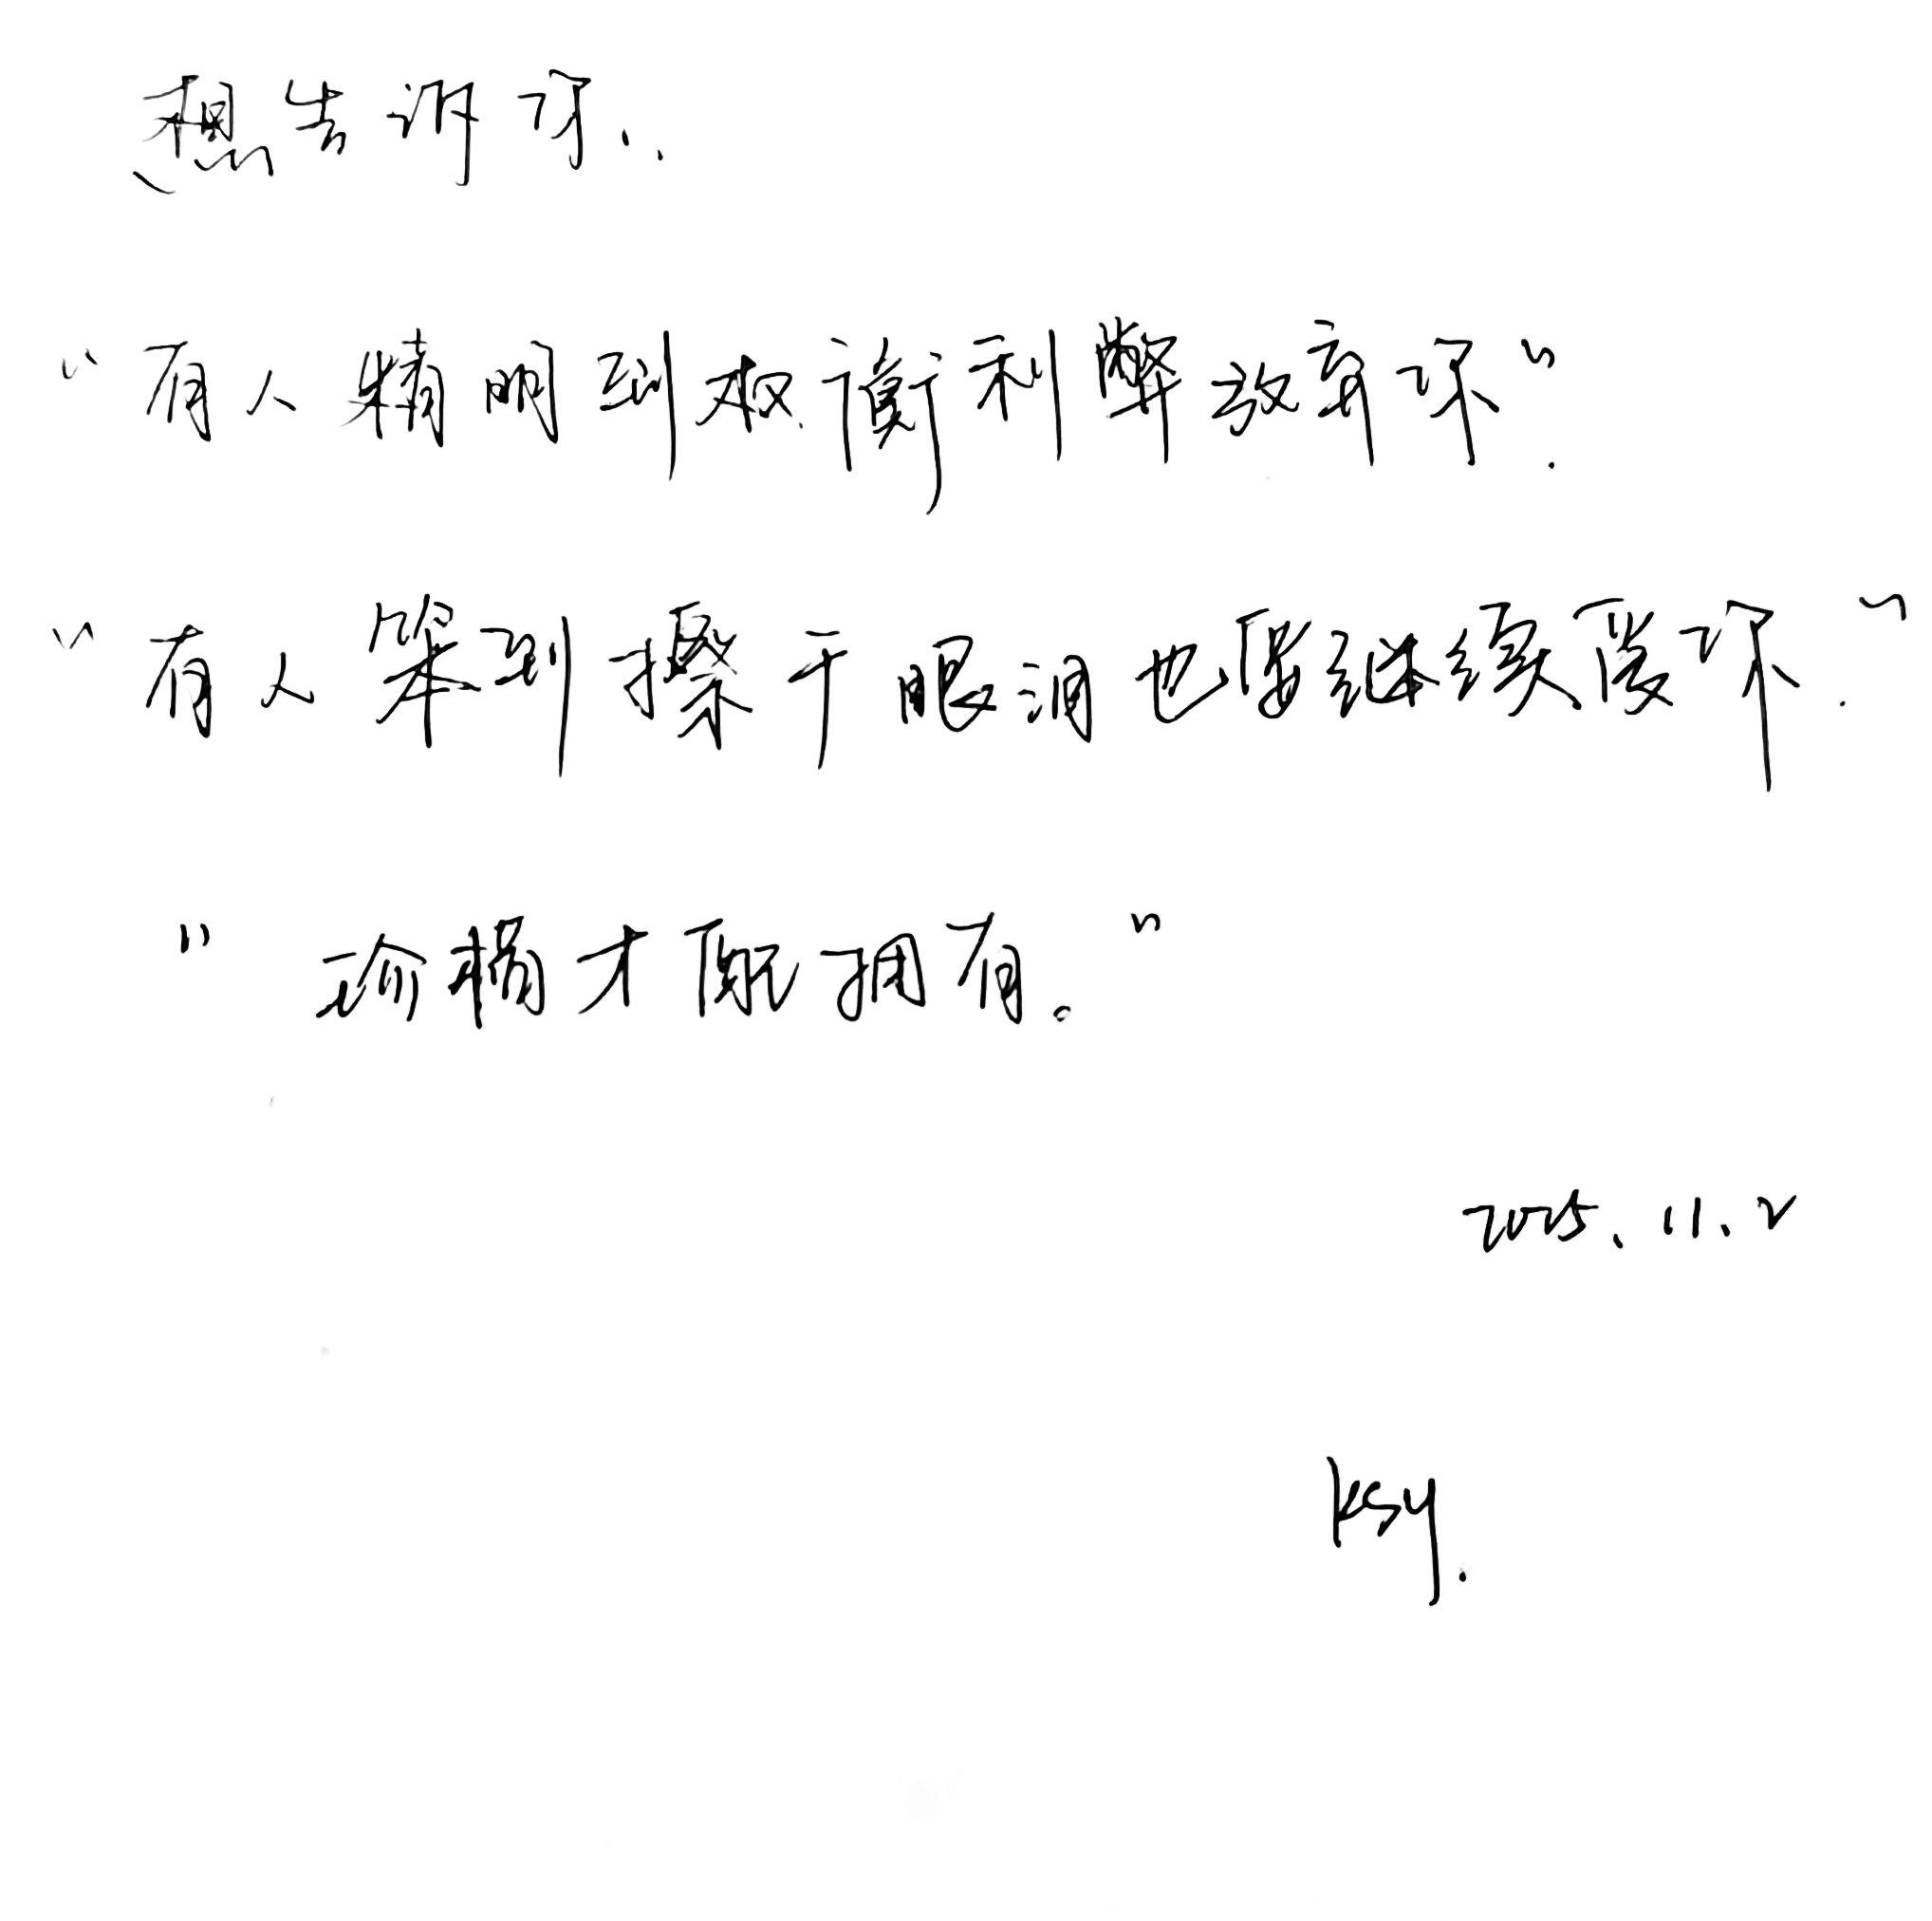 想告诉你..
“有人精明到权衡利弊放弃你”.
“有人笨到擦干眼泪也要继续爱你.”
“珍惜才配拥有。”
2025.11.2
KSY.